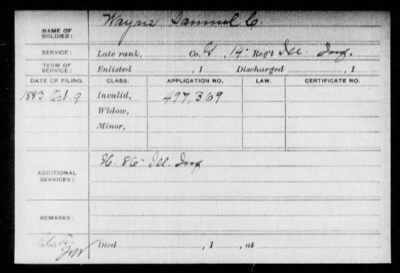 NAME OF SOLDIER: Wayne Samuel C.
SERVICE: Late rank, Co. G, 14 Reg't Ill. Inf.
TERM OF SERVICE: Enlisted , 1 Discharged , 1
DATE OF FILING. CLASS. APPLICATION NO. LAW. CERTIFICATE NO.
1883 Oct. 9 Invalid, 497,369
Widow,
Minor,
ADDITIONAL SERVICES: 86 Ill. Inf
REMARKS:
Died , 1 , at